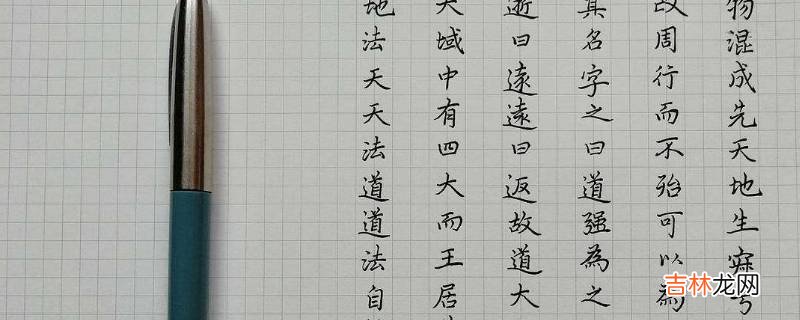 物混成先天地生寂兮
改周行而不殆可以為
其名字之曰道强為之
逝曰遠遠曰返故道大
大域中有四大而王居
地法天天法道道法自
吉林龙网